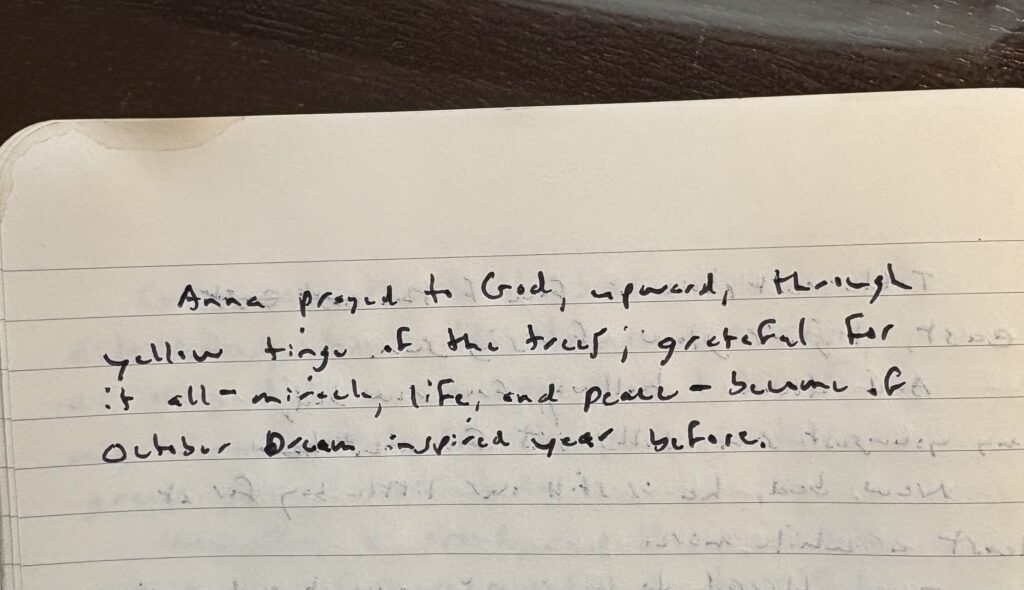 Anna prayed to God, upward, through
yellow tinge of the trees; grateful for
it all - miracle, life, and peace - because of
October Dream inspired year before.